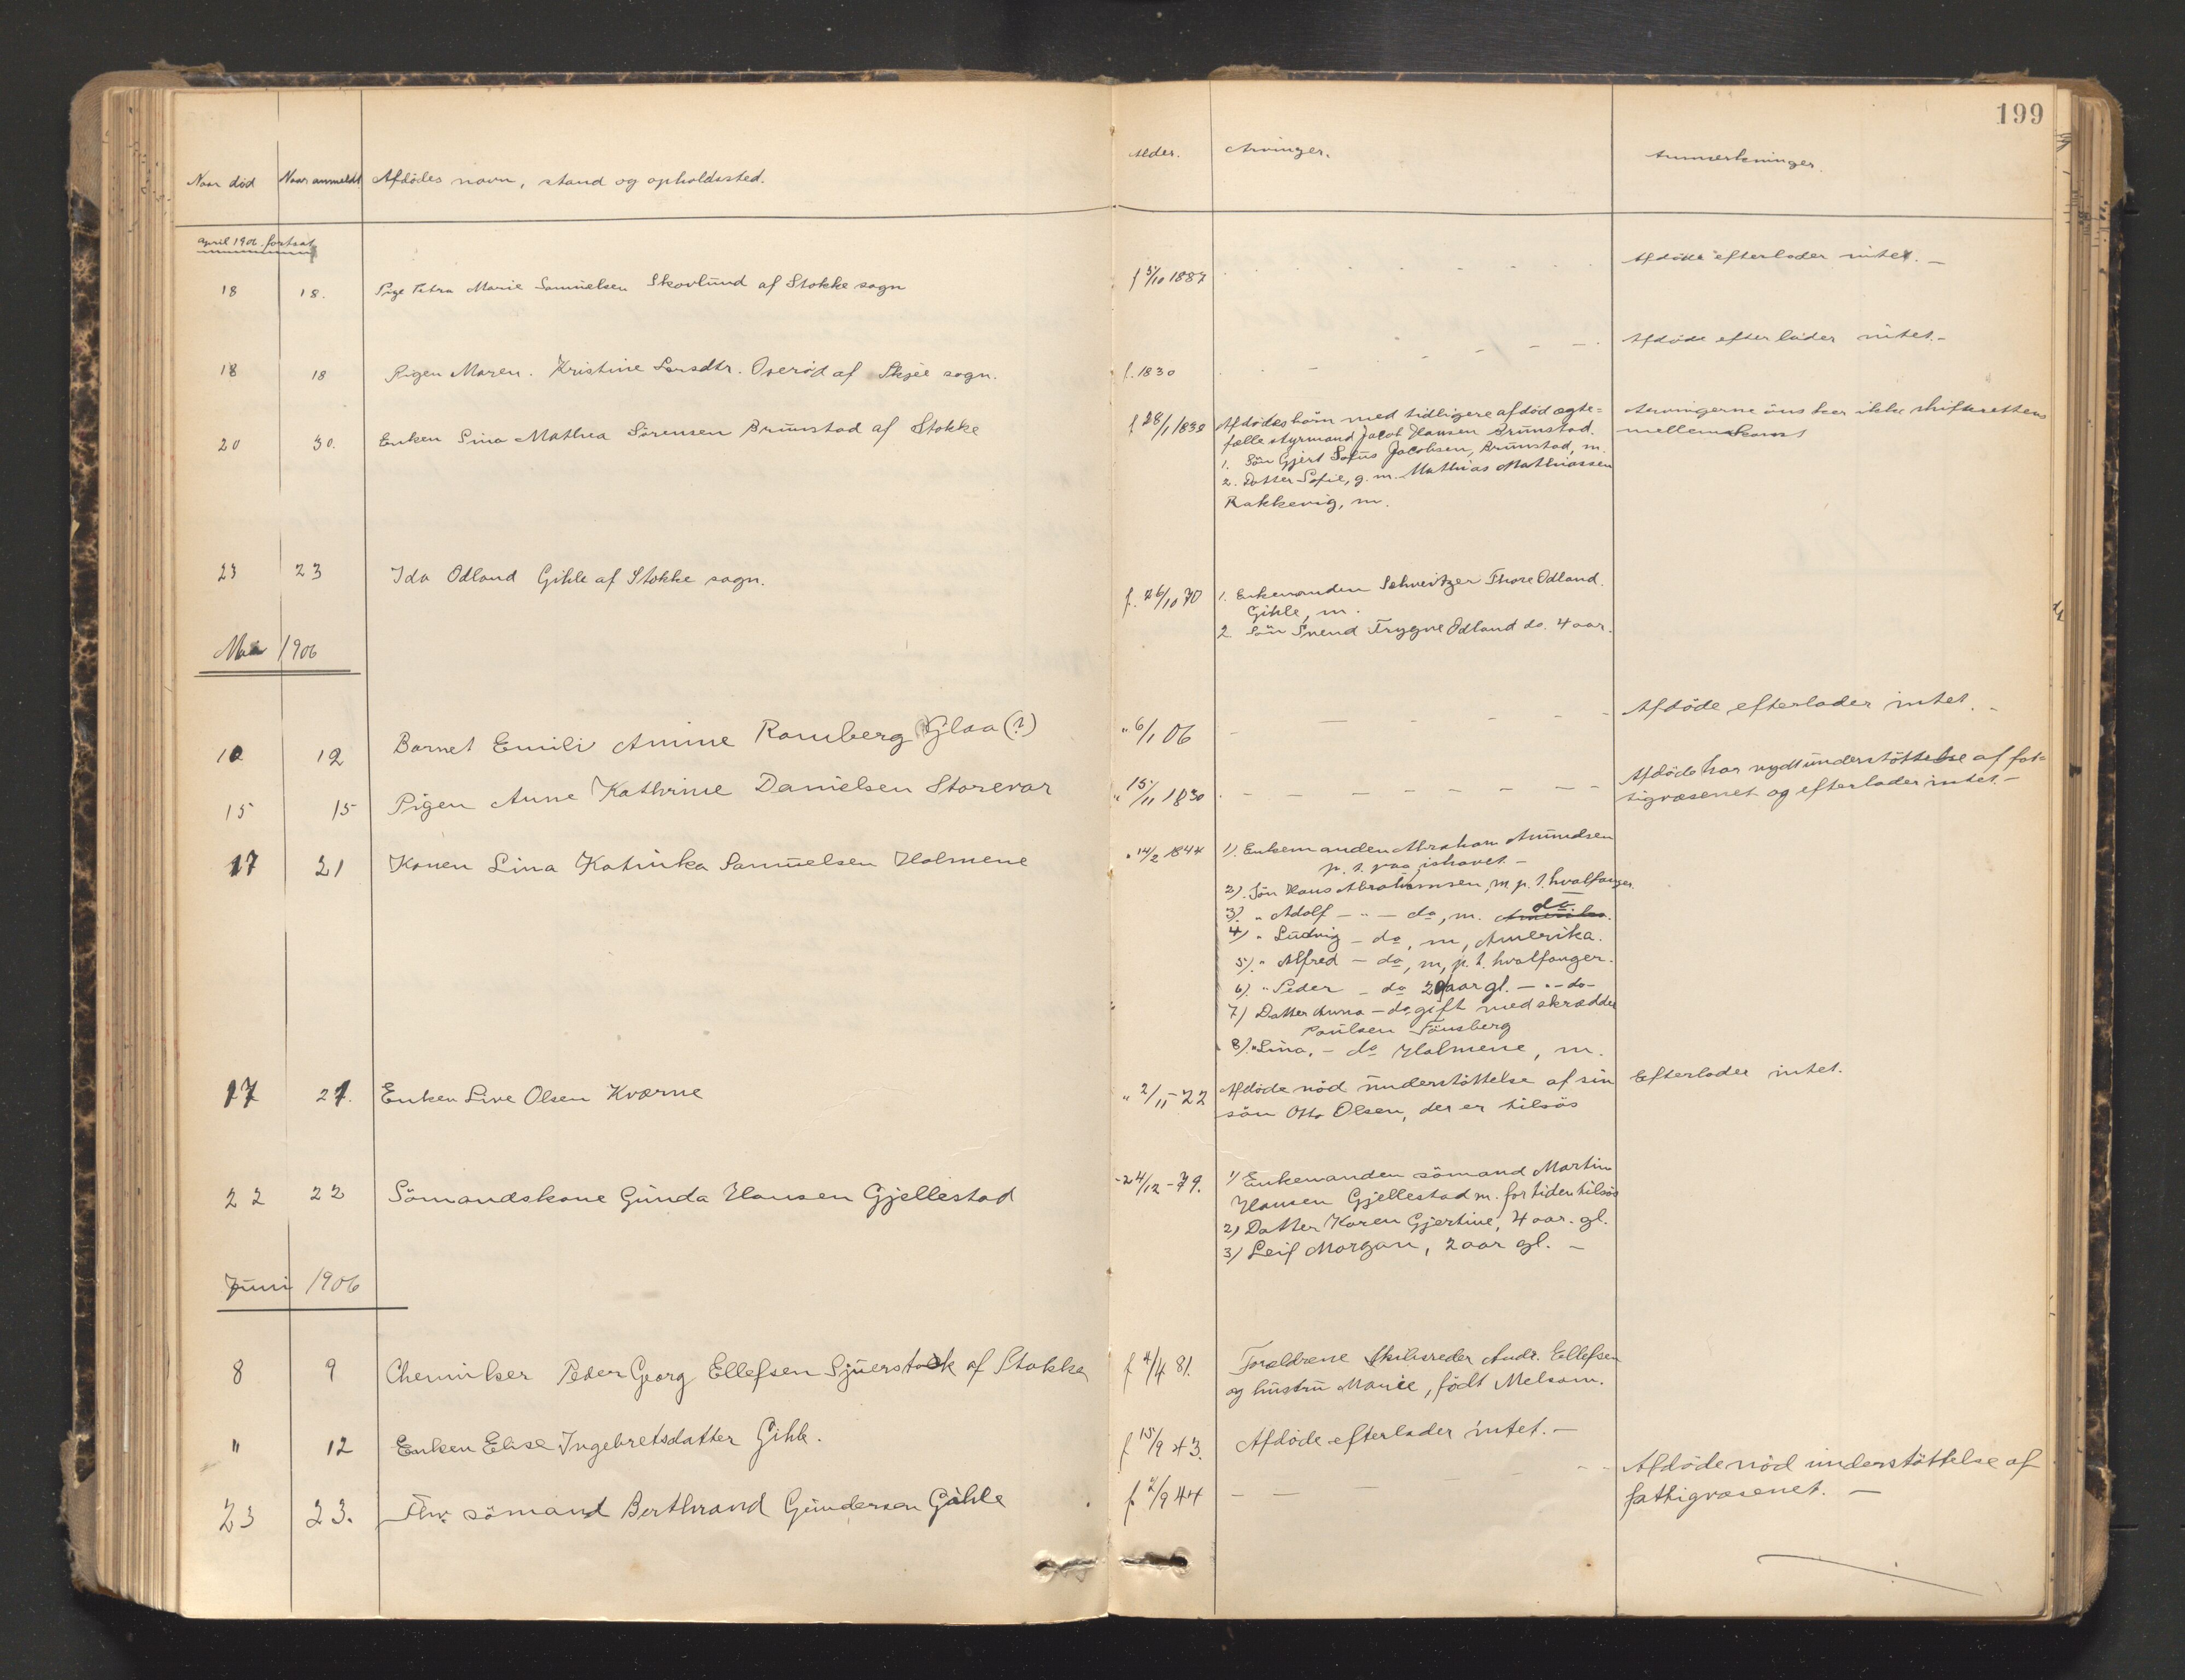 199
Naar död Naar anmeldt Afdödes navn, stand og opholdssted. Alder. Arvinger. Anmerkninger.
April 1906. fortsat
18 18. Pige Petra Marie Samuelsen Skovlund af Stokke sogn f 5/10 1887 Afdöde efterlader intet. —
18 18 Pigen Maren Kristine Larsdtr. Oserød af Skjee sogn. f. 1830 Afdöde efterlader intet. —
20 30. Enken Sina Mathea Sörensen Brunstad af Stokke f 28/1 1830 Afdödes börn med tidligere afdød ægte= Arvingerne önsker ikke skifterettens
fælle styrmand Jacob Hansen Brunstad. mellemkomst
1. Sön Gjert Sofus Jacobsen, Brunstad, m.
2. Datter Sofie, g. m. Mathias Mathiassen
Rakkevig, m.
23 23 Ida Odland Gihle af Stokke sogn. f. 26/10 70 1. Enkemanden Schweitzer Thore Odland.
Gihle, m.
2. Sön Svend Trygve Odland do. 4 aar.
Mai 1906
10 12 Barnet Emili Amine Ramberg Glaa (?) " 6/1 06 Afdöde efterlader intet. —
15 15 Pigen Anne Kathrine Danielsen Storevar " 15/11 1830 Afdöde har nydt understöttelse af fat=
tigvæsenet og efterlader intet. —
17 21 Konen Lina Katinka Samuelsen Holmene " 14/2 1844 1). Enkemanden Abraham Amundsen
p. t. paa ishavet —
2). Sön Hans Abrahamsen, m. p. t. hvalfanger.
3). " Adolf — " — do, m. Amerika. do
4) " Ludvig — do, m, Amerika.
5). " Alfred — do, m, p. t. hvalfanger.
6). " Peder — do 20 aar gl. — " — do —
7) Datter Anna — do gift med skrædder
Paulsen Tönsberg
8). " Lina, — do Holmene, m.
17 21. Enken Live Olsen Kværne " 2/11 - 22 Afdöde nöd understöttelse af sin Efterlader intet.
sön Otto Olsen, der er tilsös
22 22 Sömandskone Gunda Hansen Gjellestad - 24/12 - 79. 1) Enkemanden sömand Martin
Hansen Gjellestad m. for tiden tilsös
2) Datter Karen Gjertine, 4 aar. gl.
3) Leif Morgan, 2 aar gl. —
Juni 1906
8 9 Chemiker Peder Georg Ellefsen Sjuerstok af Stokke f 4/4 81. Forældrene Skibsreder Andr. Ellefsen
og hustru Marie, født Melsom.
" 12 Enken Elise Ingebretsdatter Gihle. f 15/9 43. Afdöde efterlader intet. —
23 23. Fhv. sömand Berthrand Gundersen Gihle f 2/9 44 Afdöde nöd understöttelse af
fattigvæsenet. —